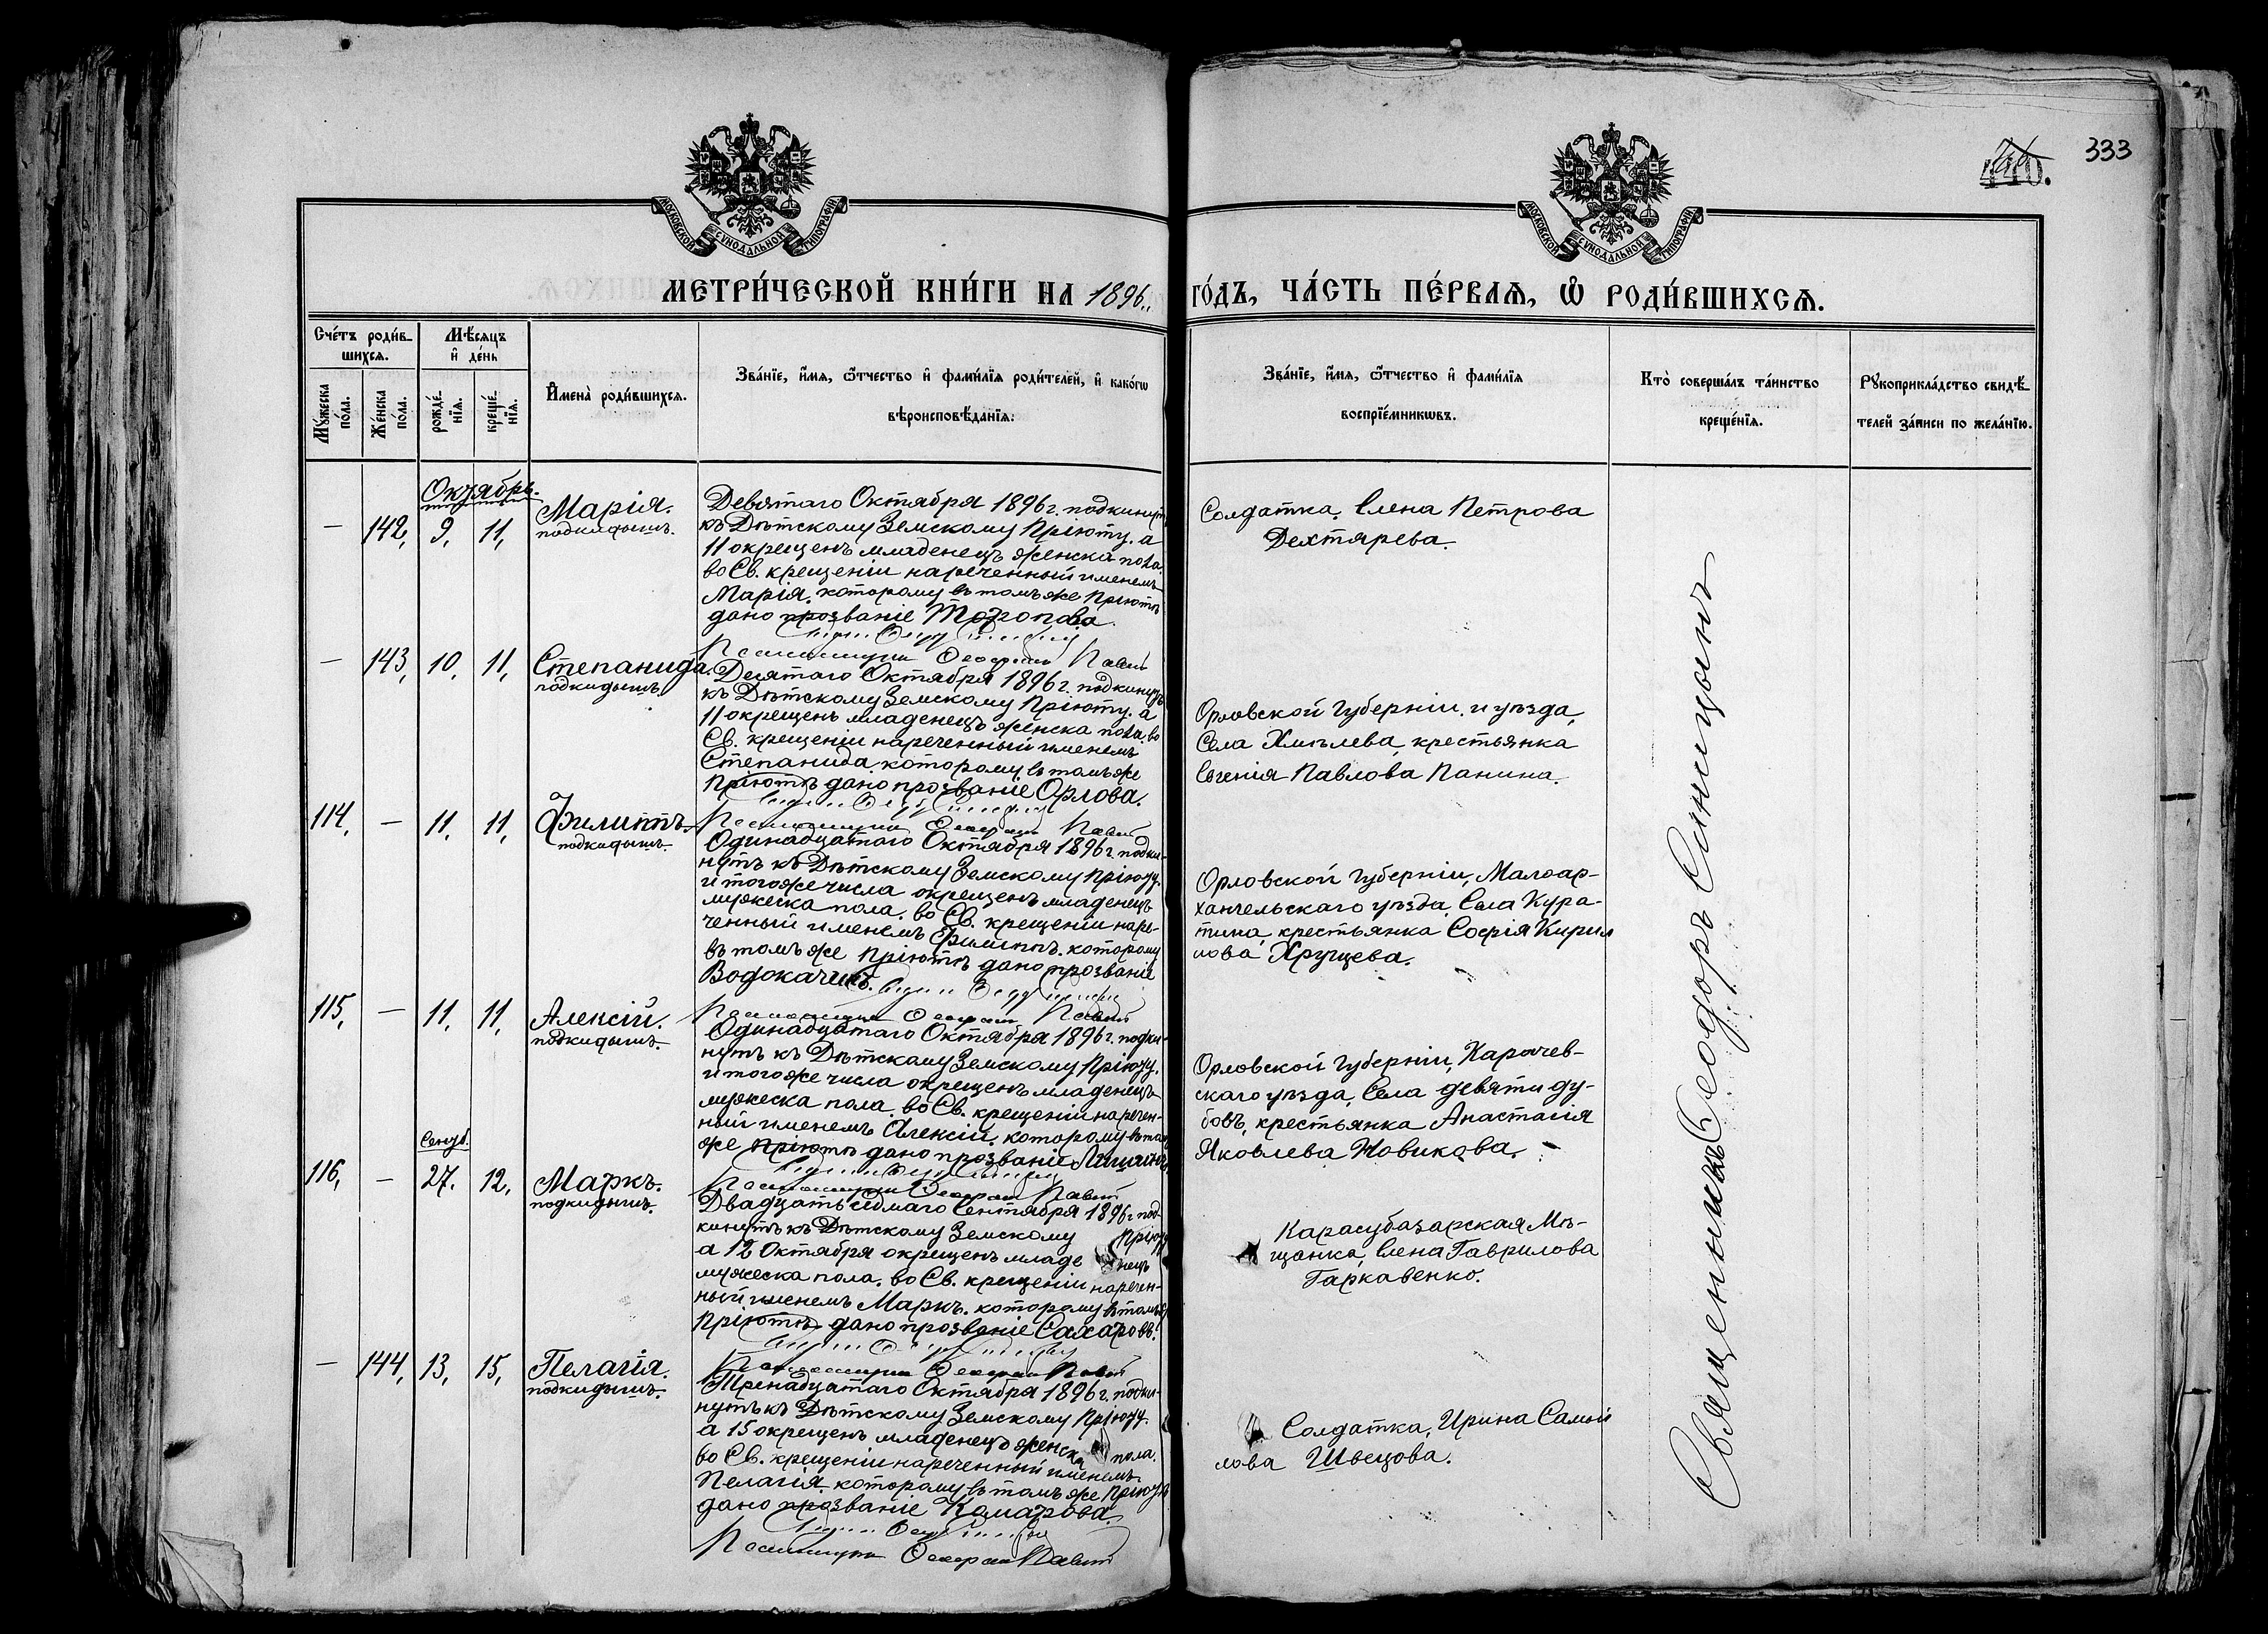 333
МОСКОВСКОЙ СУНОДАЛЬНОЙ ТИПОГРАФІИ
МОСКОВСКОЙ СУНОДАЛЬНОЙ ТИПОГРАФІИ
МЕТРИ́ЧЕСКОЙ КНИ́ГИ НА 1896 ГО́ДЪ, ЧА́СТЬ ПЕ́РВАѦ, Ѡ РОДИ́ВШИХСѦ.
Сче́тъ роди́в-
шихсѧ.
Мѣ́сѧцъ
и҆ де́нь
Мꙋ́жеска
по́ла.
Же́нска
по́ла.
рожде́-
нїѧ.
креще́-
нїѧ.
И҆мена̀ роди́вшихсѧ.
Зва́нїе, и҆́мѧ, ѻ҆́тчество и҆ фами́лїѧ роди́телей, и҆ како́гѡ
вѣроисповѣ́данїѧ.
Зва́нїе, и҆́мѧ, ѻ҆́тчество и҆ фами́лїѧ
воспрїе́мникѡвъ.
Кто̀ соверша́лъ та́инство
креще́нїѧ.
Рꙋкоприкла́дство свидѣ́-
телей за́писи по жела́нїю.
Октябрь.
— 142, 9, 11,
Марія.
подкидышъ.
Девятаго Октября 1896 г. подкинутъ
къ Дѣтскому Земскому Пріюту. а
11 окрещенъ младенецъ женска пола.
во Св. крещеніи нареченный именемъ
Марія. которому въ томъ же Пріютѣ
дано прозваніе
Солдатка. Елена Петрова
Дехтярева.
— 143, 10, 11,
Степанида.
подкидышъ.
Десятаго Октября 1896 г. подкинутъ
къ Дѣтскому Земскому Пріюту. а
11 окрещенъ младенецъ женска пола. во
Св. крещеніи нареченный именемъ
Степанида. которому въ томъ же
Пріютѣ дано прозваніе Орлова.
Орловской Губерніи. и уѣзда,
Села Хмѣлева, крестьянка
Евгенія Павлова Панина.
114, — 11, 11,
Филиппъ.
подкидышъ.
Одинадцатаго Октября 1896 г. подки-
нутъ къ Дѣтскому Земскому Пріюту.
и того же числа окрещенъ младенецъ
мужеска пола. во Св. крещеніи наре-
ченный именемъ Филиппъ. которому
въ томъ же Пріютѣ дано прозваніе
Орловской Губерніи, Малоар-
хангельскаго уѣзда, Села Кура-
кина, крестьянка Софія Кирил
лова Хрущева.
115, — 11, 11,
Алексій.
подкидышъ.
Одинадцатаго Октября 1896 г. подки-
нутъ къ Дѣтскому Земскому Пріюту.
и того же числа окрещенъ младенецъ
мужеска пола. во Св. крещеніи наречен-
ный именемъ Алексій. которому въ томъ
же Пріютѣ дано прозваніе
Орловской Губерніи, Карачев-
скаго уѣзда, Села девяти ду-
бовъ, крестьянка Анастасія
Яковлева Новикова.
Сентб.
116, — 27. 12,
Маркъ.
подкидышъ.
Двадцать седмаго Сентября 1896 г. под-
кинутъ къ Дѣтскому Земскому Пріюту
а 12 Октября окрещенъ младенецъ
мужеска пола. во Св. крещеніи наречен-
ный именемъ Маркъ. которому въ томъ
Пріютѣ дано прозваніе Сахаровъ.
Карасубазарская Мѣ-
щанка, Елена Гаврилова
Гаркавенко.
— 144, 13, 15,
Пелагія.
подкидышъ.
Тренадцатаго Октября 1896 г. подки-
нутъ къ Дѣтскому Земскому Пріюту.
а 15 окрещенъ младенецъ женска пола.
во Св. крещеніи нареченный именемъ
Пелагія. которому въ томъ же Пріютѣ
дано прозваніе Комарова.
Солдатка, Ирина Самой
лова Швецова.
Священникъ Ѳеодоръ Синицынъ